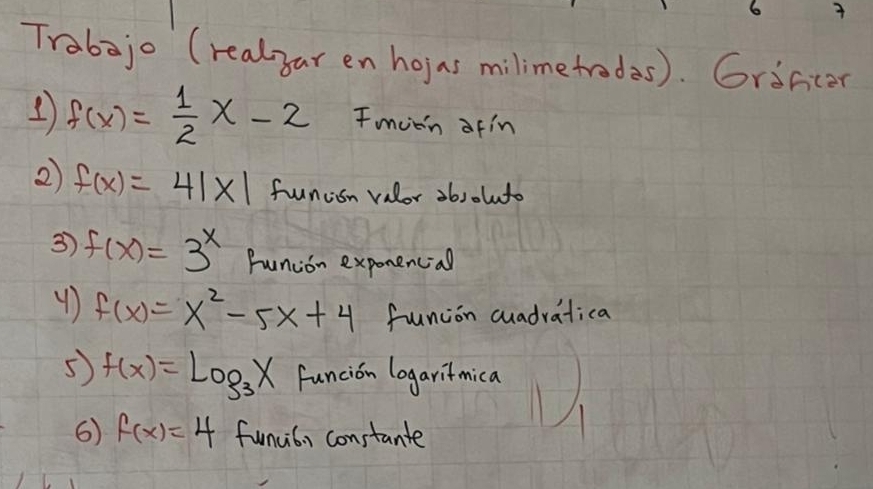 6 7
Trabajo (realizar en hojas milimetradas). Gráficar
1) f(x) = 1/2 x - 2 Función afín
2) f(x) = 4|x| función valor absoluto
3) f(x) = 3^x función exponencial
4) f(x) = x² - 5x + 4 función cuadrática
5) f(x) = Log₃X función logarítmica
6) f(x) = 4 función constante